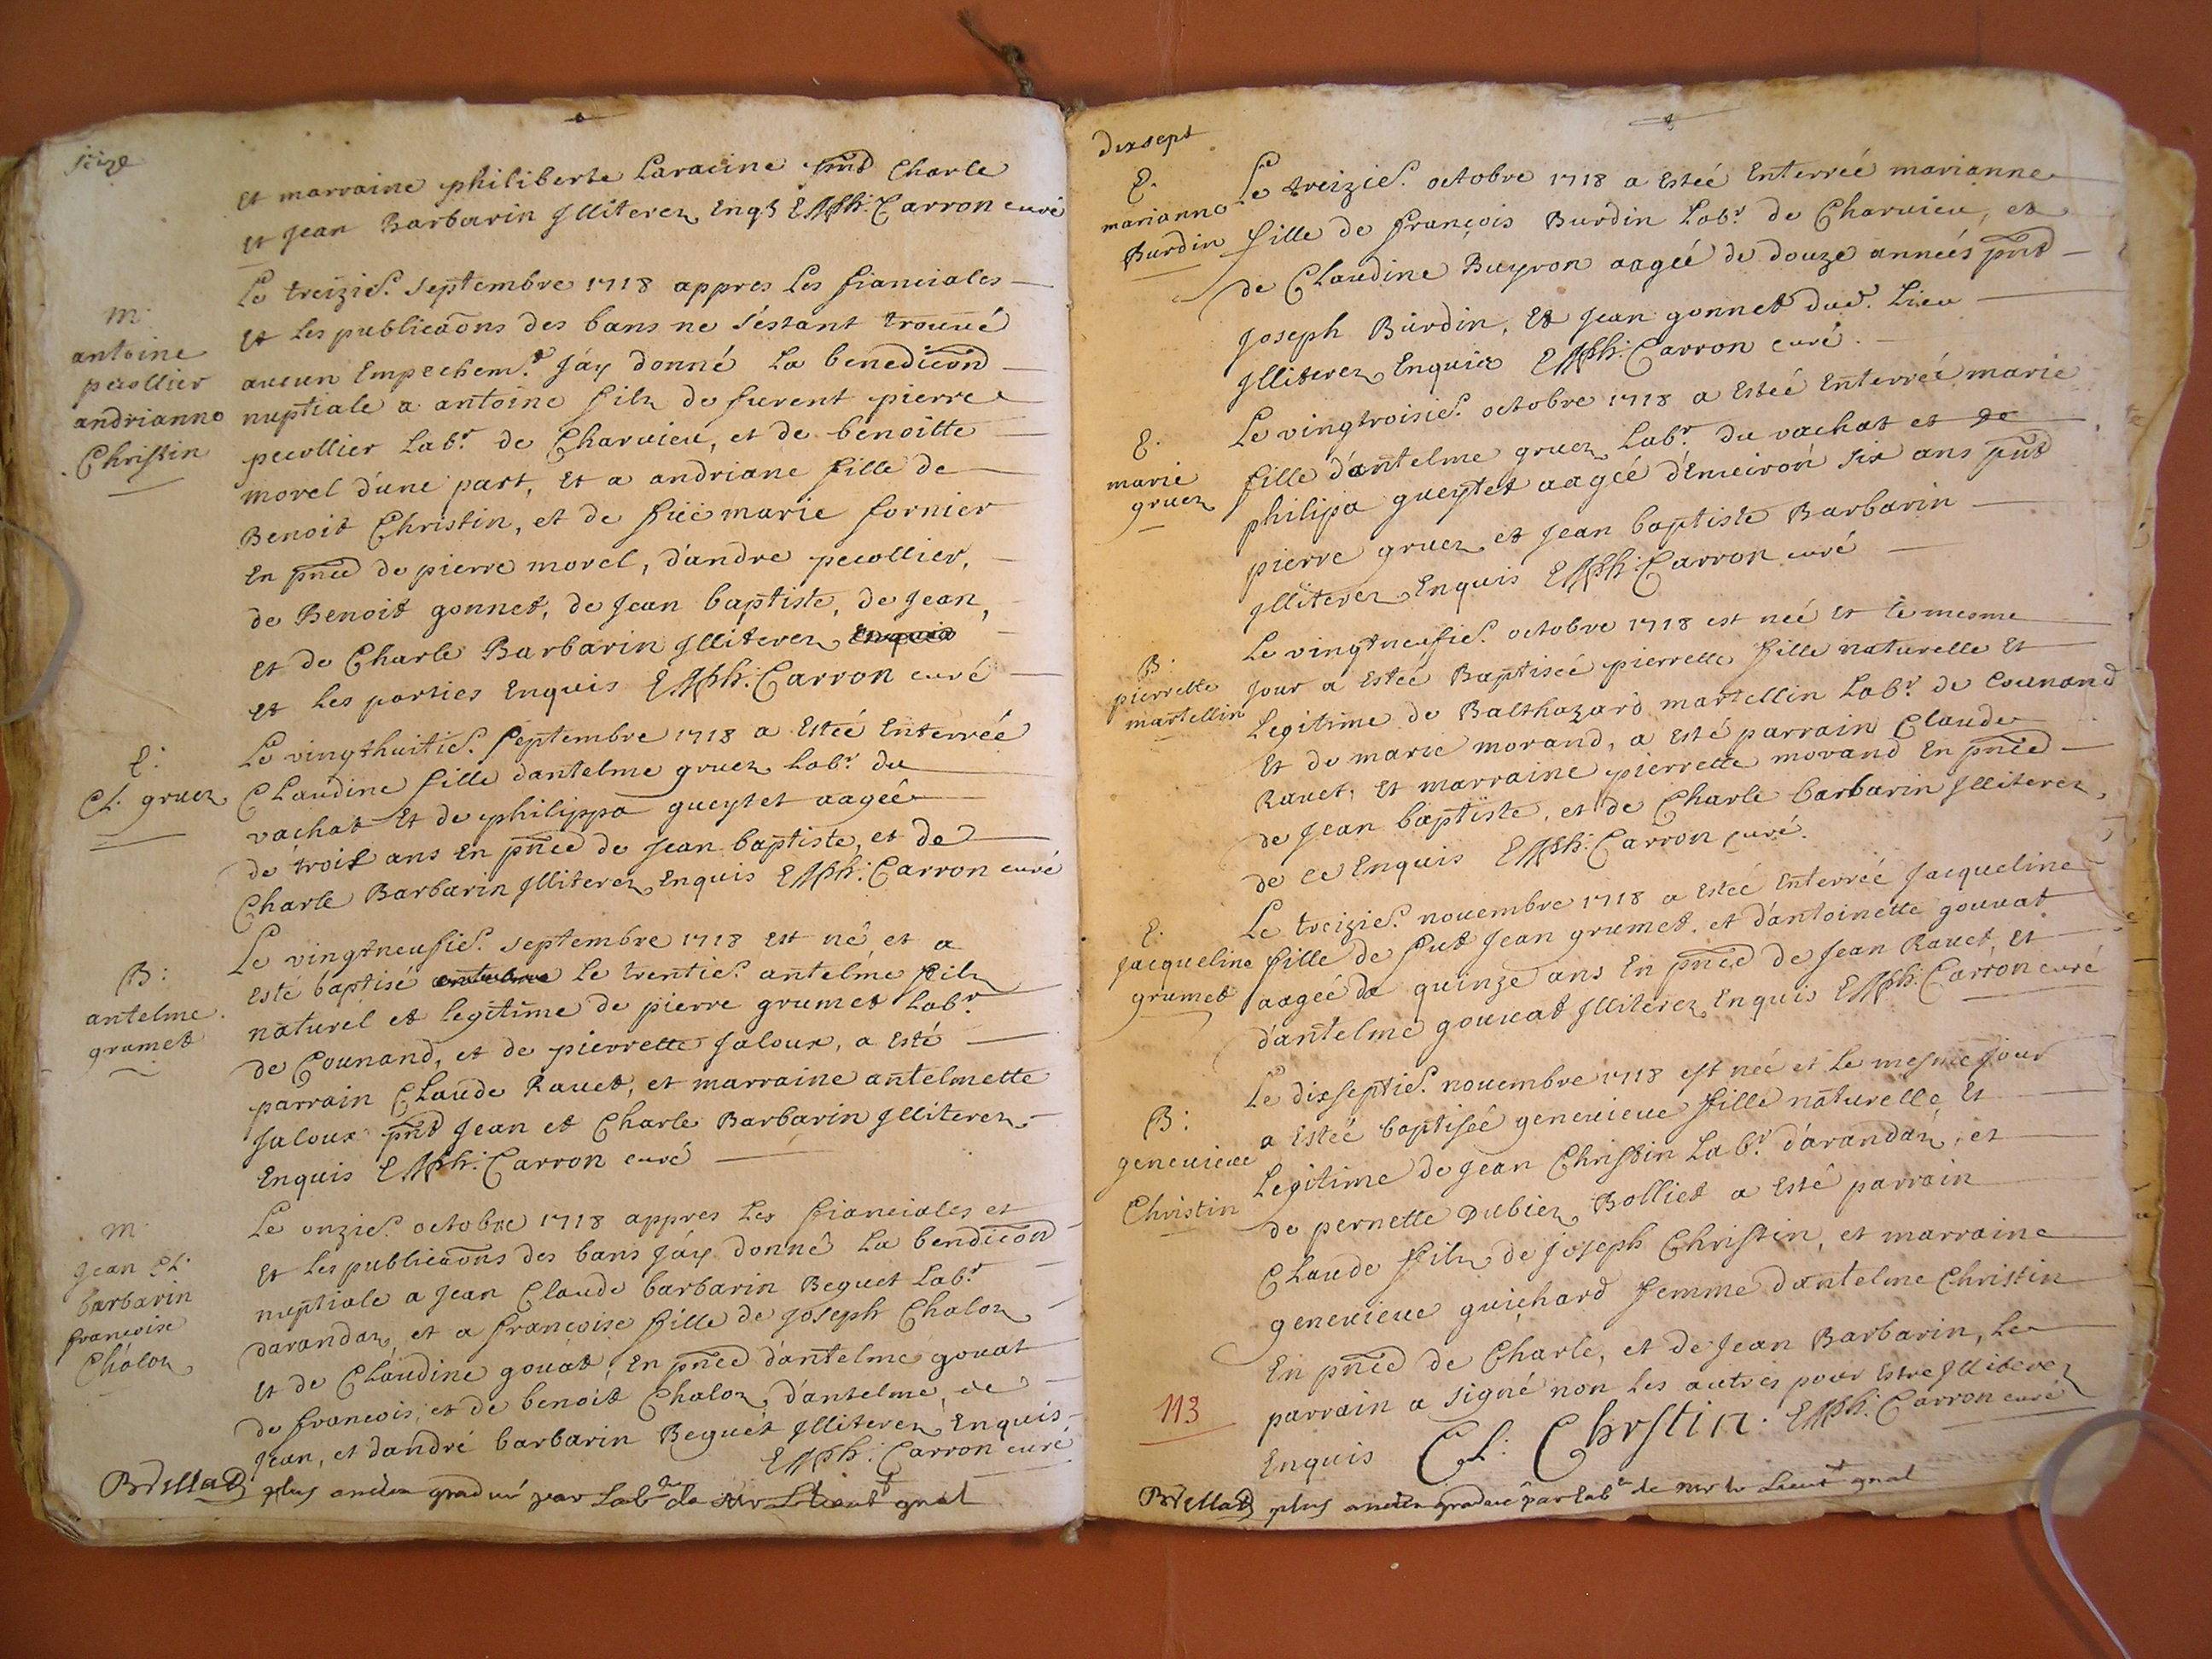 seize
Et marraine philiberte Laracine pnt Charle
Et Jean Barbarin Jlliterez Enqs E Mph: Carron curé
m.
antoine
pecollier
andrianne
Christin
Le treizie. septembre 1718 appres Les fianciales
Et Les publicaons des bans ne s'estant trouué
aucun Empechemt. J'ay donné La benediction
nuptiale a antoine filz de furent pierre
pecollier Labr. de Charuieu, et de benoitte
morel d'une part, Et a andriane fille de
Benoit Christin, et de füe marie fornier
En pnce de pierre morel, d'andre pecollier,
de Benoit gonnet, de Jean baptiste, de Jean,
Et de Charle Barbarin Jlliterez Enquis
Et Les parties Enquis E Mph: Carron curé
E:
Cl. gruez
Le vingthuitie. septembre 1718 a Esteé Enterreé
Claudine fille dantelme gruez Labr. du
vachat Et de philippa gueytet aageé
de trois ans En pnce de Jean baptiste, et de
Charle Barbarin Jlliterez Enquis E Mph: Carron curé
B:
antelme
grumet
Le vingtneufie. septembre 1718 Est né et a
Esté baptisé antelme Le trentie. antelme filz
naturel et legitime de pierre grumet Labr.
de Counand, et de pierrette Jaloux, a Esté
parrain Claude Rauet, et marraine antelmette
Jaloux pnt Jean et Charle Barbarin Jlliterez
Enquis E Mph: Carron curé
m.
Jean Cl.
barbarin
francoise
Chalon
Le onzie. octobre 1718 appres Les fianciales et
Et Les publicaons des bans J'ay donné La bendicon
nuptiale a Jean Claude barbarin Beguet Labr.
darandaz et a francoise fille de Joseph Chalon
Et de Claudine gouat, En pnce d'antelme gouat
de francois, et de benoit Chalon, d'antelme, de
Jean, et dandré barbarin Beguet Jlliterez Enquis
E Mph: Carron curé
Brillat plus ancien gradué par Labce de Mr Le Lieutt gnal
dixsept
E.
marianne
Burdin
Le treizie. octobre 1718 a Esteé Enterreé marianne
fille de françois Burdin Labr. de Charuieu, et
de Claudine Buyron aageé de douze anneés pnt
Joseph Burdin, Et Jean gonnet dud. Lieu
Jlliterez Enquis E Mph: Carron curé.
E.
marie
gruez
Le vingtroisie. octobre 1718 a Esteé Enterreé marie
fille d'antelme gruez Labr. du vachat et de
philipa gueytet aageé d'Enuiron six ans pnt
pierre gruez et Jean baptiste Barbarin
Jlliterez Enquis E Mph: Carron curé
B.
pierrette
martellin
Le vingtneufie. octobre 1718 est neé Et Le mesme
Jour a Esteé Baptiseé pierrette fille naturelle Et
Legitime de Balthazard martellin Labr. de Counand
Et de marie morand, a Esté parrain Claude
Rauet, Et marraine pierrette morand En pnce
de Jean baptiste, et de Charle barbarin Jlliterez,
de ce Enquis E Mph: Carron curé.
E.
Jacqueline
grumet
Le treizie. nouembre 1718 a Esteé Enterreé Jacqueline
fille de fut Jean grumet, et d'antoinette gouuat
aageé de quinze ans En pnce de Jean Rauet, Et
d'antelme gouuat Jlliterez Enquis E Mph: Carron curé
B:
geneuieue
Christin
Le dixseptie. nouembre 1718 est neé et Le mesme Jour
a Esteé baptiseé geneuieue fille naturelle, Et
Legitime de Jean Christin Labr. d'arandaz, et
de pernette Dubiez Bolliet a Esté parrain
Claude filz de Joseph Christin, et marraine
geneuieue guichard femme dantelme Christin
En pnce de Charle, et de Jean Barbarin, Le
parrain a signé non Les autres pour Estre Jlliterez
Enquis Cl: Chrstin. E Mph: Carron curé
113
Brillat plus ancien gradué par Labce de Mr Le Lieutt gnal